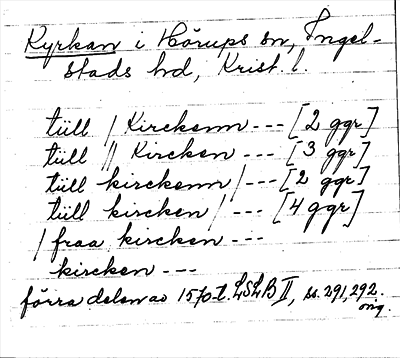 Kyrkan i Hörups sn, Ingel-
stads hd, Krist. l.
tüll / Kirckenn --- [2 ggr]
tüll // Kircken --- [3 ggr]
tüll kirckenn / --- [2 ggr]
tüll kircken / --- [4 ggr]
/ fraa kircken ---
kircken ---
förra delen av 1570-t. LSLB II, ss. 291, 292.
orig.